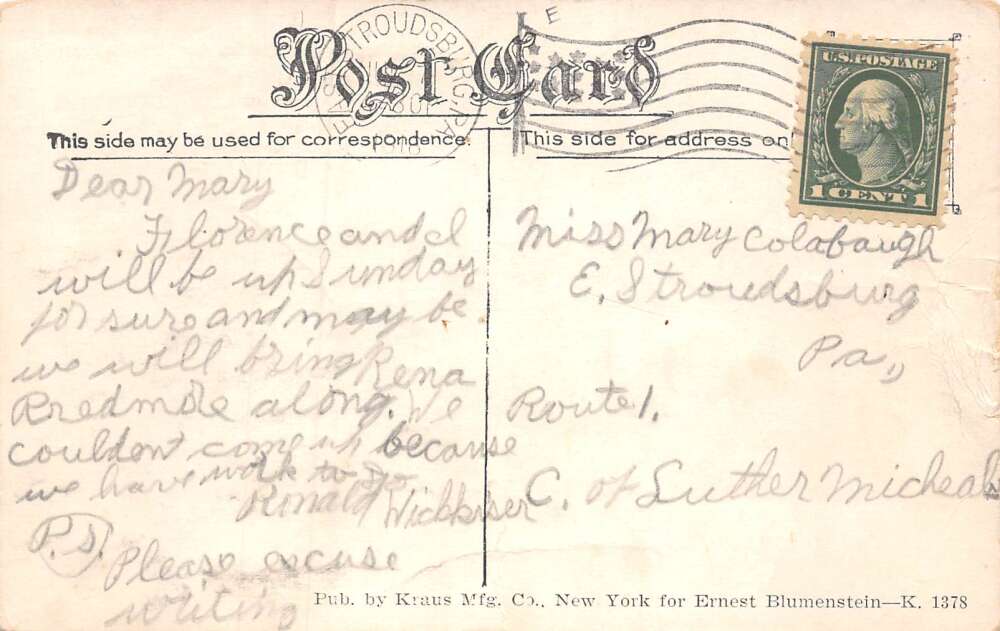 Post Card
EAST STROUDSBURG, PA.
This side may be used for correspondence.
This side for address onl
U.S. POSTAGE
1 CENT 1
Dear Mary
Florence and I
will be up Sunday
for sure and may be
we will bring Rena
Bredmore along. We
couldent come up because
we have work to do
Ronald Wickkiser
P.S.
Please excuse
writing
Miss Mary Colabaugh
E. Stroudsburg
Pa,,
Route 1.
C. of Luther Micheals
Pub. by Kraus Mfg. Co., New York for Ernest Blumenstein—K. 1378